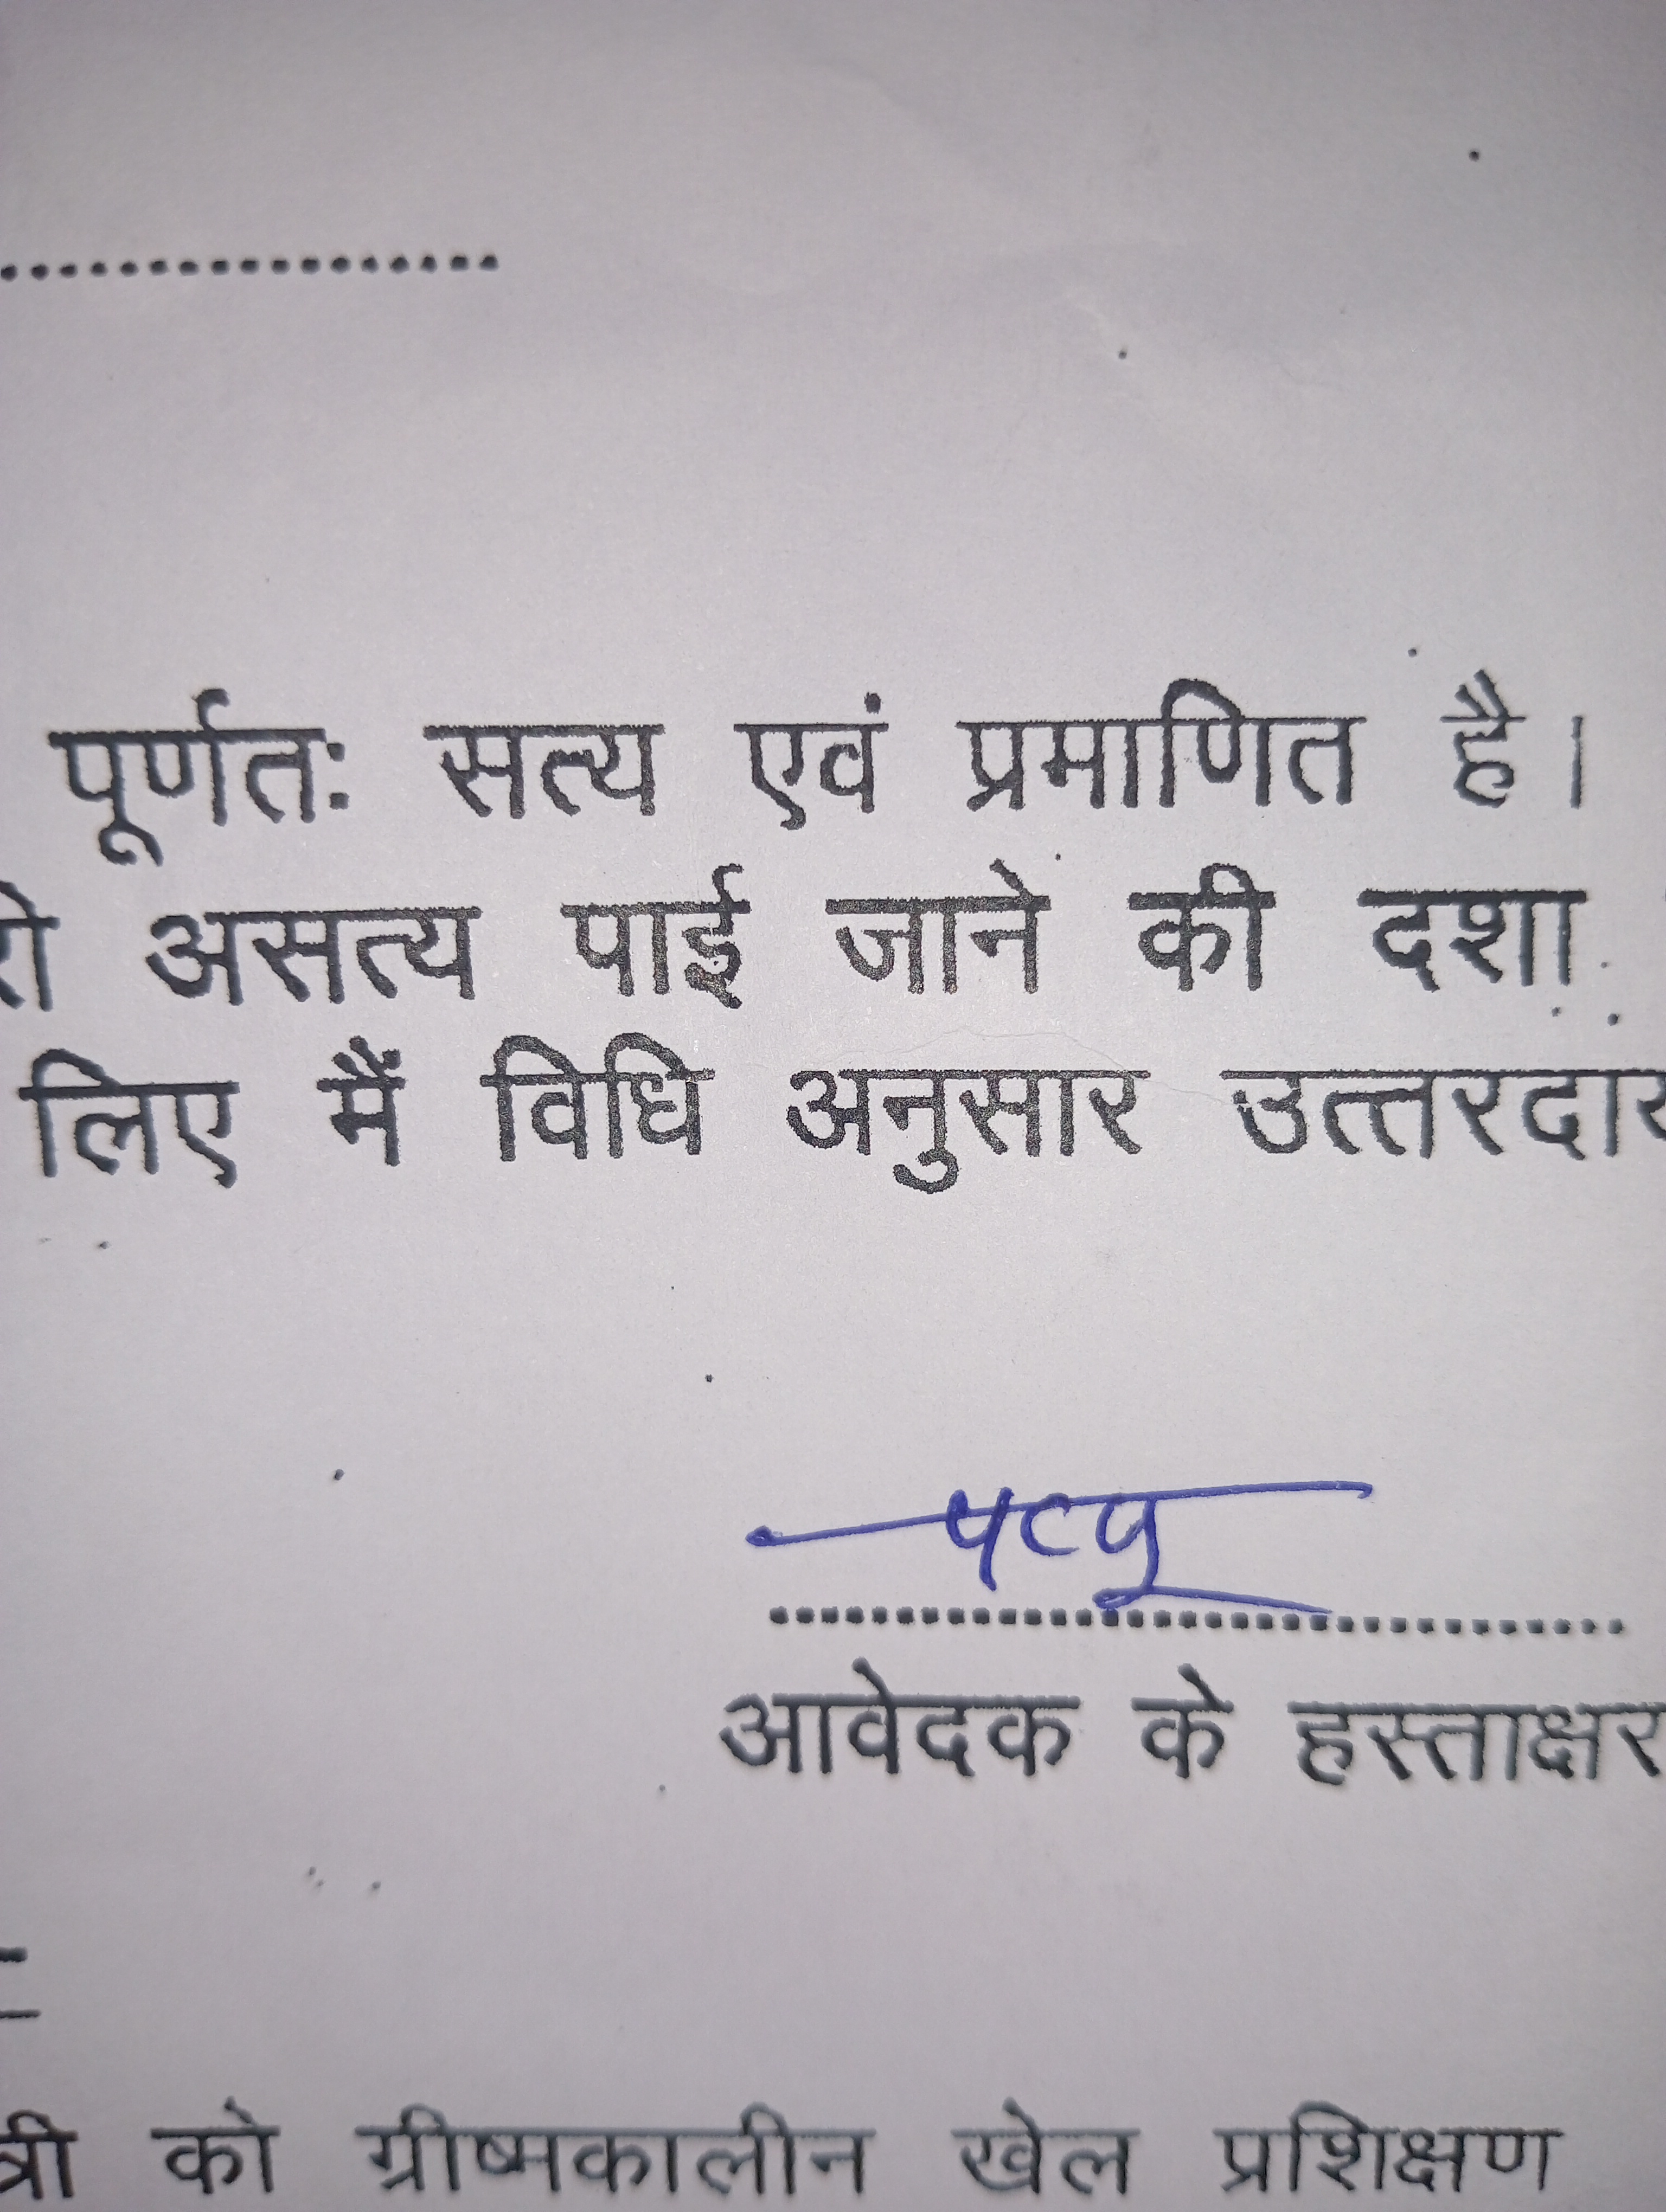 ..................
पूर्णतः सत्य एवं प्रमाणित है।
असत्य पाई जाने की दशा
लिए मैं विधि अनुसार उत्तरदाय
..............................
आवेदक के हस्ताक्षर
को ग्रीष्मकालीन खेल प्रशिक्षण